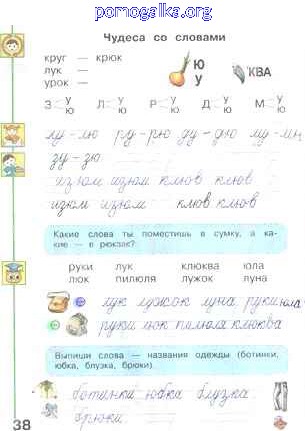 pomogalka.org
Чудеса со словами
круг — крюк
лук —
урок —
Ю
У
КВА
З У Ю Л У Ю Р У Ю Д У Ю М У Ю
лу - лю ру - рю ду - дю му -
зу - зю
изюм изюм клюв клюв
изюм изюм клюв клюв
Какие слова ты поместишь в сумку, а ка-
кие — в рюкзак?
руки лук клюква юла
люк пилюля лужок луна
лук лужок луна руки юла
руки люк пилюля клюква
Выпиши слова — названия одежды (ботинки,
юбка, блузка, брюки).
ботинки юбка блузка
брюки
38